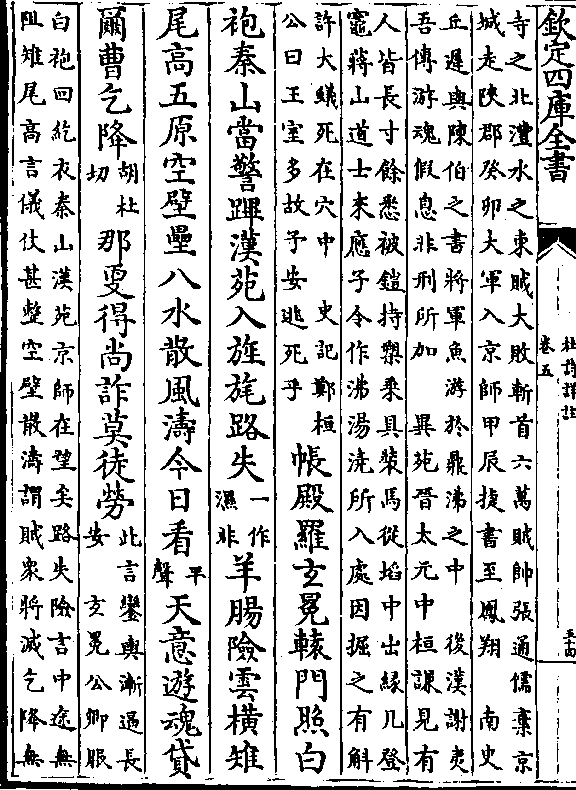 欽定四庫全書
杜詩詳註
卷五
寺之北澧水之東賊大敗斬首六萬賊帥張通儒棄京
城走陜郡癸卯大軍入京師甲辰捷書至鳳翔 南史
丘遲與陳伯之書將軍魚游於鼎沸之中 後漢謝夷
吾傳游魂假息非刑所加 異苑晉太元中桓謙見有
人皆長寸餘悉被鎧持槊乘具裝馬從埳中出縁几登
竈蔣山道士朱應子令作沸湯澆所入處因掘之有斛
許大蟻死在穴中 史記鄭桓
公曰王室多故予安逃死乎
帳殿羅玄冕轅門照白
袍秦山當警蹕漢苑入旌旄路失一作濕非羊腸險雲橫雉
尾高五原空壁壘八水散風濤今日看平聲天意遊魂貸
爾曹乞降胡杜切那更得尚詐莫徒勞
此言鑾輿漸逼長
安 玄冕公卿服
白袍回紇衣秦山漢苑京師在望矣路失險言中途無
阻雉尾高言儀仗甚整空壁散濤謂賊衆將滅乞降無